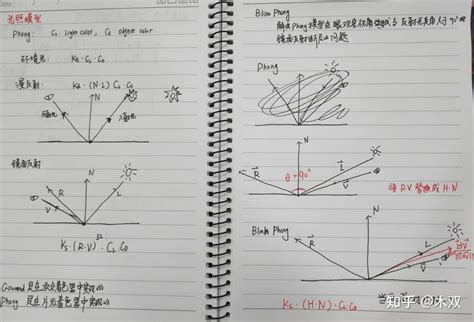 光照模型
Phong: CL light color, Co object color
环境光: Ka·CL·Co
漫反射: Kd·(N·L) CL·Co
N
镜面反射
N
R
L
V
32
Ks·(R·V) CL·Co
Gouraud 是在顶点着色器中实现的
Phong 是在片元着色器中实现的
Blinn Phong
解决Phong模型在
反射光夹角大于90°时
镜面反射断层的问题
Phong
N
R
θ>90°
L
V
将R·V替换成H·N
Blinn Phong
N
R
L
V
Ks·(H·N)·CL·Co
知乎 @木双